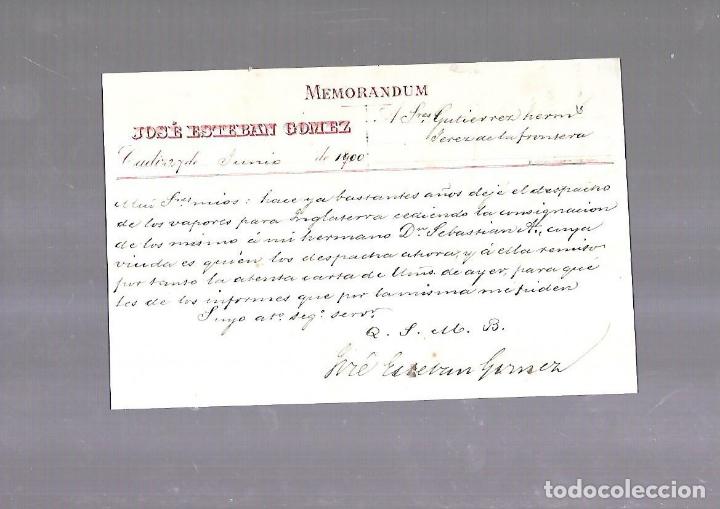 MEMORANDUM
JOSÉ ESTEBAN GOMEZ
A Sres Gutierrez herms
Jerez de la frontera
Cadiz 27 de Junio de 1900
Mui Sres mios: hace ya bastantes años dejé el despacho
de los vapores para Inglaterra cediendo la consignacion
de los mismo á mi hermano Dn Sebastian A., cuya
viuda es quien los despacha ahora, y á ella remiso
por tanto la atenta carta de Uds. de ayer, para qué
les de los informes que por la misma me piden
Suyo ato. sego. servor
Q. S. M. B.
José Esteban Gomez
todocoleccion